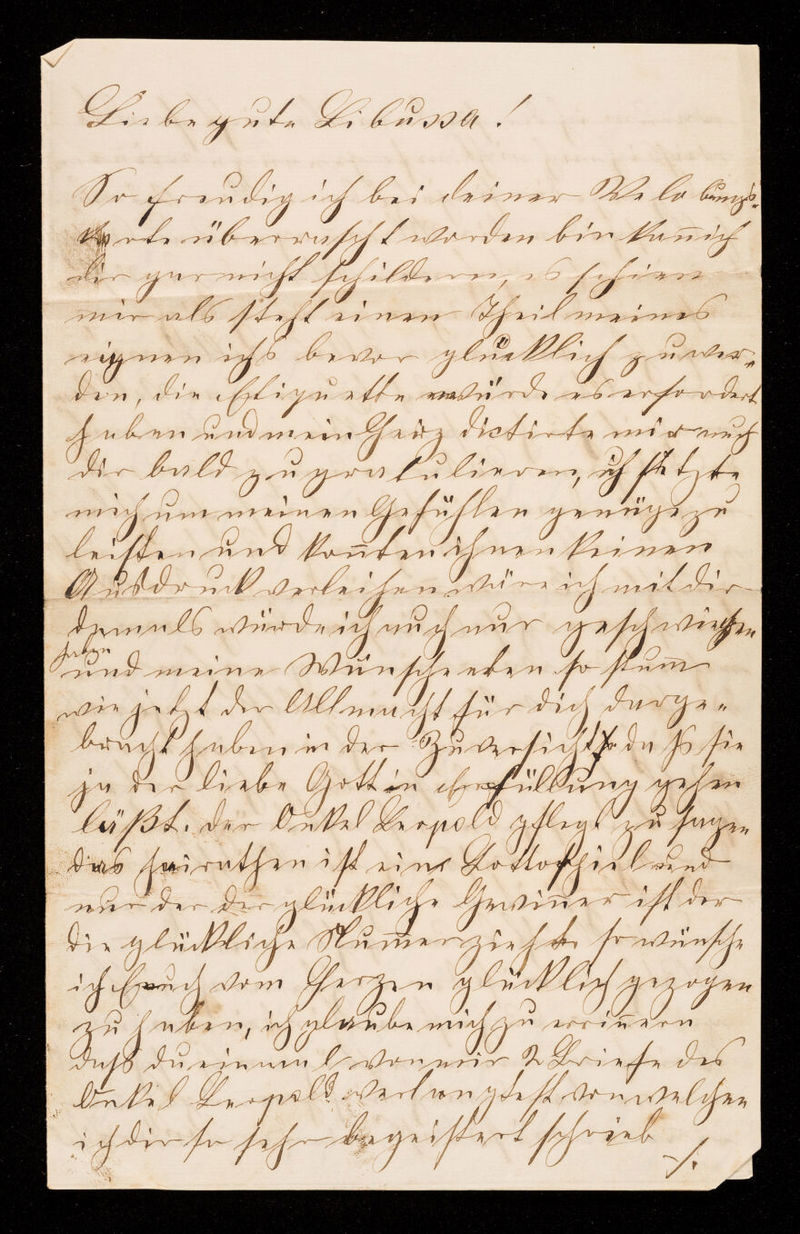 Liebe gute Libussa!
So freudig ich bei deiner Verlobungs-
karte überrascht worden bin kan̅ ich
dir gar nicht schildern, es schien
mir als steht einen Theil meines
eignen ichs bevor glücklich zu wer-
den, die Etiquette würde es erfordert
haben und mein Herz dictirte mir auch
dir bald zu gratulieren, ich setzte
mich um meinen Gefühlen genüge zu
leisten und kon̅te ihnen keinen
Ausdruck verleihen wäre ich mit dir
damals würde ich auch nur geschwiegen
haben
und meine Wünsche eben so stum̅
wie jetzt der Allmacht für dich darge-
bracht haben in der Zuversicht daß sie
ja der liebe Gott in Erfüllung gehen
läßt. der Onkel Leopold pflegt zu sagen
das heirathen ist eine Lottospiel und
nur der der glückliche Gewin̅er ist der
die glückliche Num̅er zieht so wünsche
ich Euch vom Herzen glücklich gezogen
zu haben, ich glaube mich zu errin̅ern
daß du einmal von mir 2 Briefe des
Onkel Leopold verlangtest von welchen
ich dir so sehr begeistert schrieb
./.